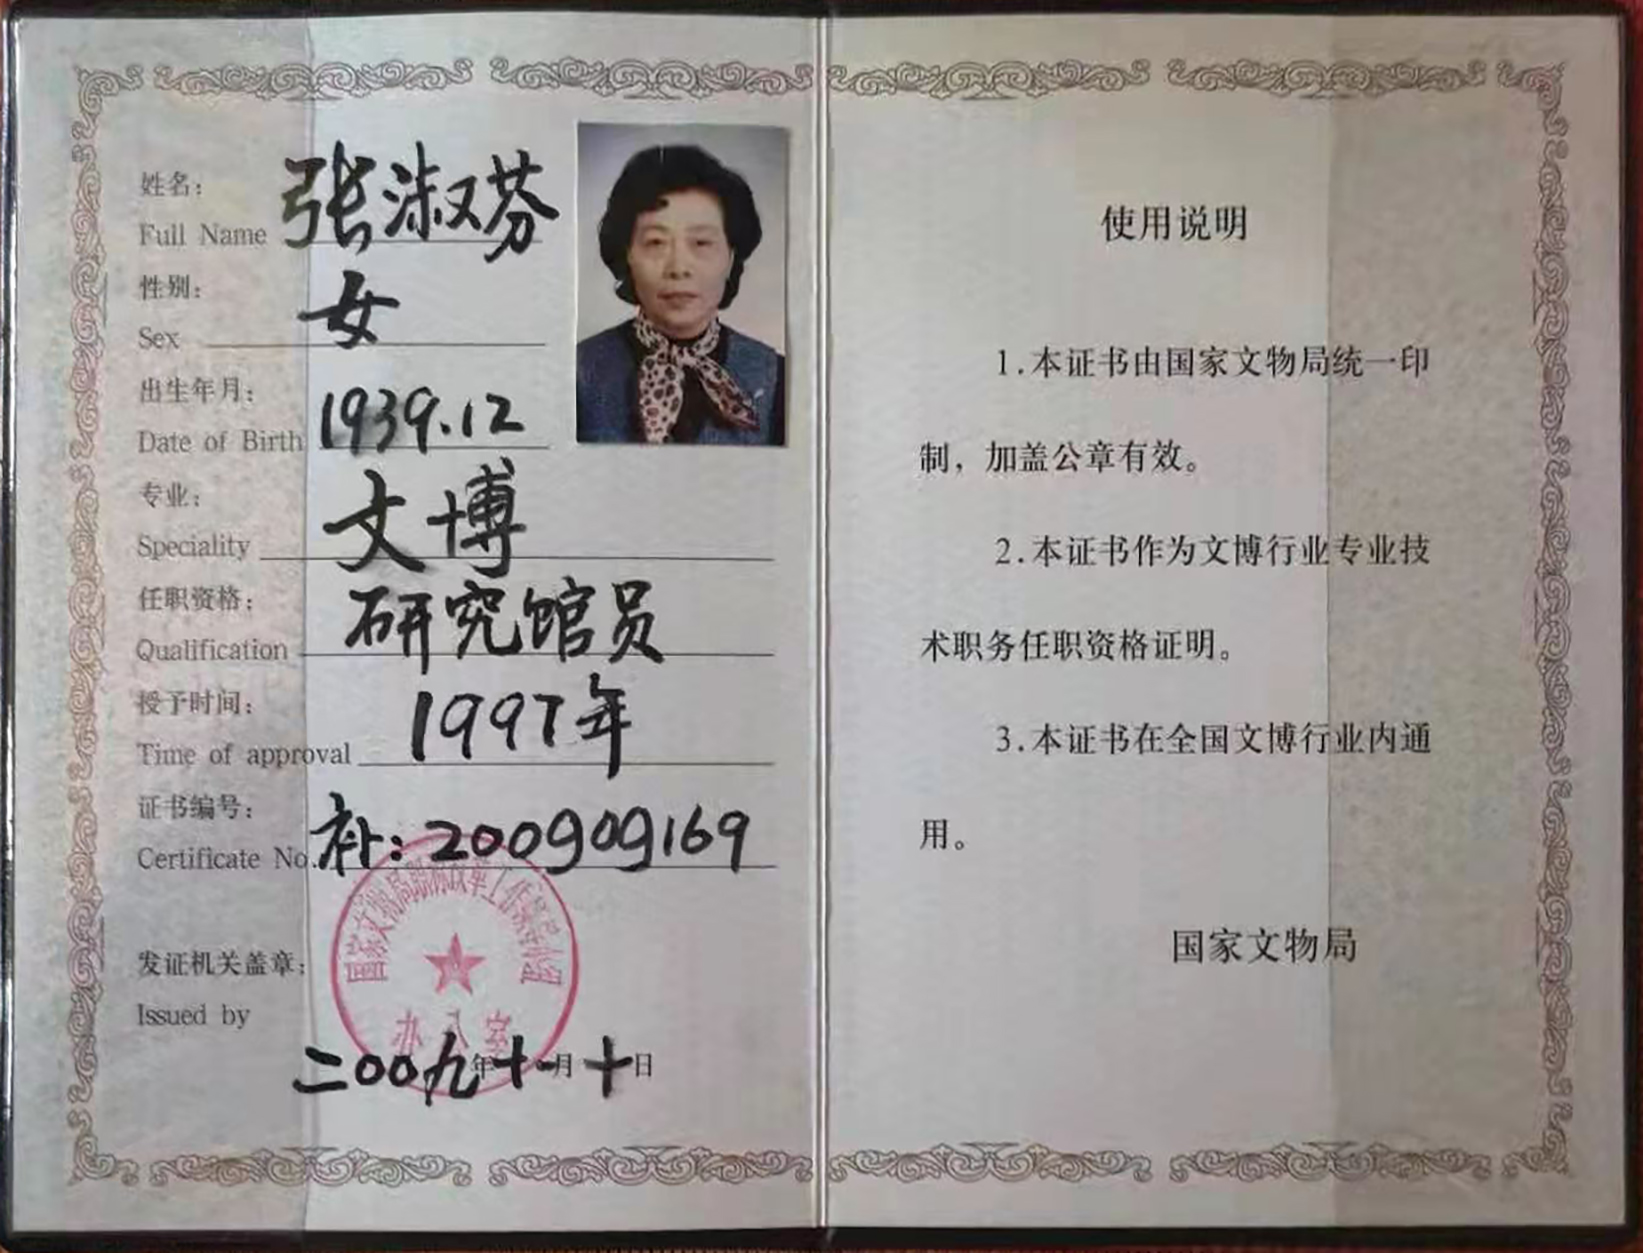 姓名：
Full Name 张淑芬
性别：
Sex 女
出生年月：
Date of Birth 1939.12
专业：
Speciality 文博
任职资格：
Qualification 研究馆员
授予时间：
Time of approval 1997年
证书编号：
Certificate No. 补：200909169
发证机关盖章：
Issued by
办公室
二〇〇九年十一月十日
使用说明
1.本证书由国家文物局统一印
制，加盖公章有效。
2.本证书作为文博行业专业技
术职务任职资格证明。
3.本证书在全国文博行业内通
用。
国家文物局